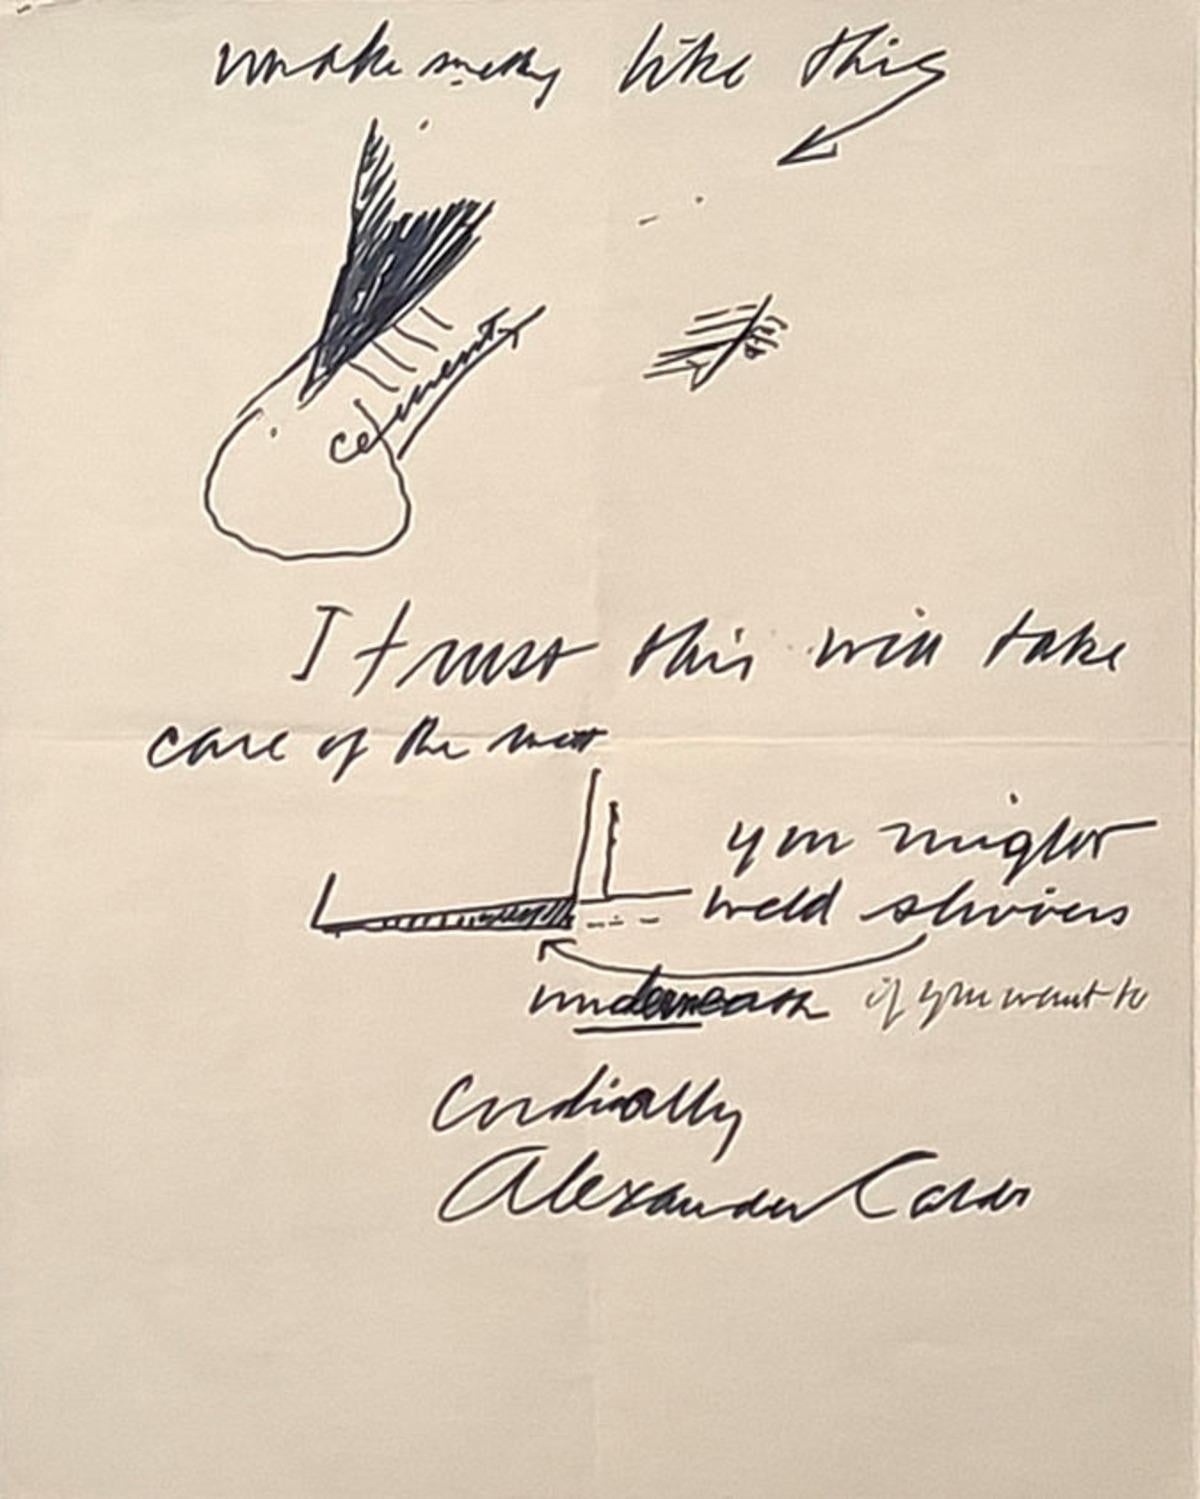 make like this
cement
I trust this will take
care of the
you might
weld slivers
underneath if you want to
Cordially
Alexander Calder